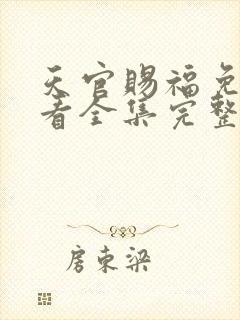 天官赐福免
看全集完整
房东梁